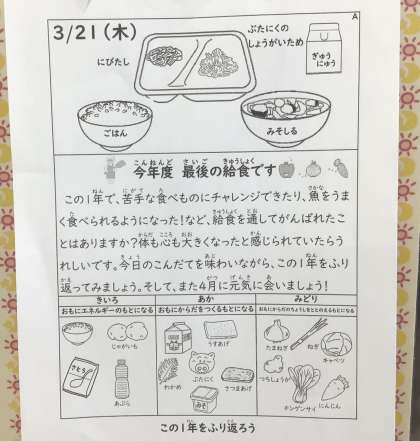 A
3/21(木)
ぶたにくの
しょうがいため
にびたし
ぎゅう
にゅう
ごはん
みそしる
今年度 最後の給食です
この1年で、苦手な食べものにチャレンジできたり、魚をうま
く食べられるようになった!など、給食を通してがんばれたこ
とはありますか?体も心も大きくなったと感じられていたらう
れしいです。今日のこんだてを味わいながら、この1年をふり
返ってみましょう。そして、また4月に元気に会いましょう!
きいろ
おもにエネルギーのもとになる
あか
おもにからだをつくるもとになる
みどり
おもにからだのちょうしをととのえるもとになる
こめ
じゃがいも
さとう
あぶら
うすあげ
わかめ
ぶたにく
さつまあげ
みそ
たまねぎ
ねぎ
キャベツ
つちしょうが
チンゲンサイ
にんじん
この1年をふり返ろう